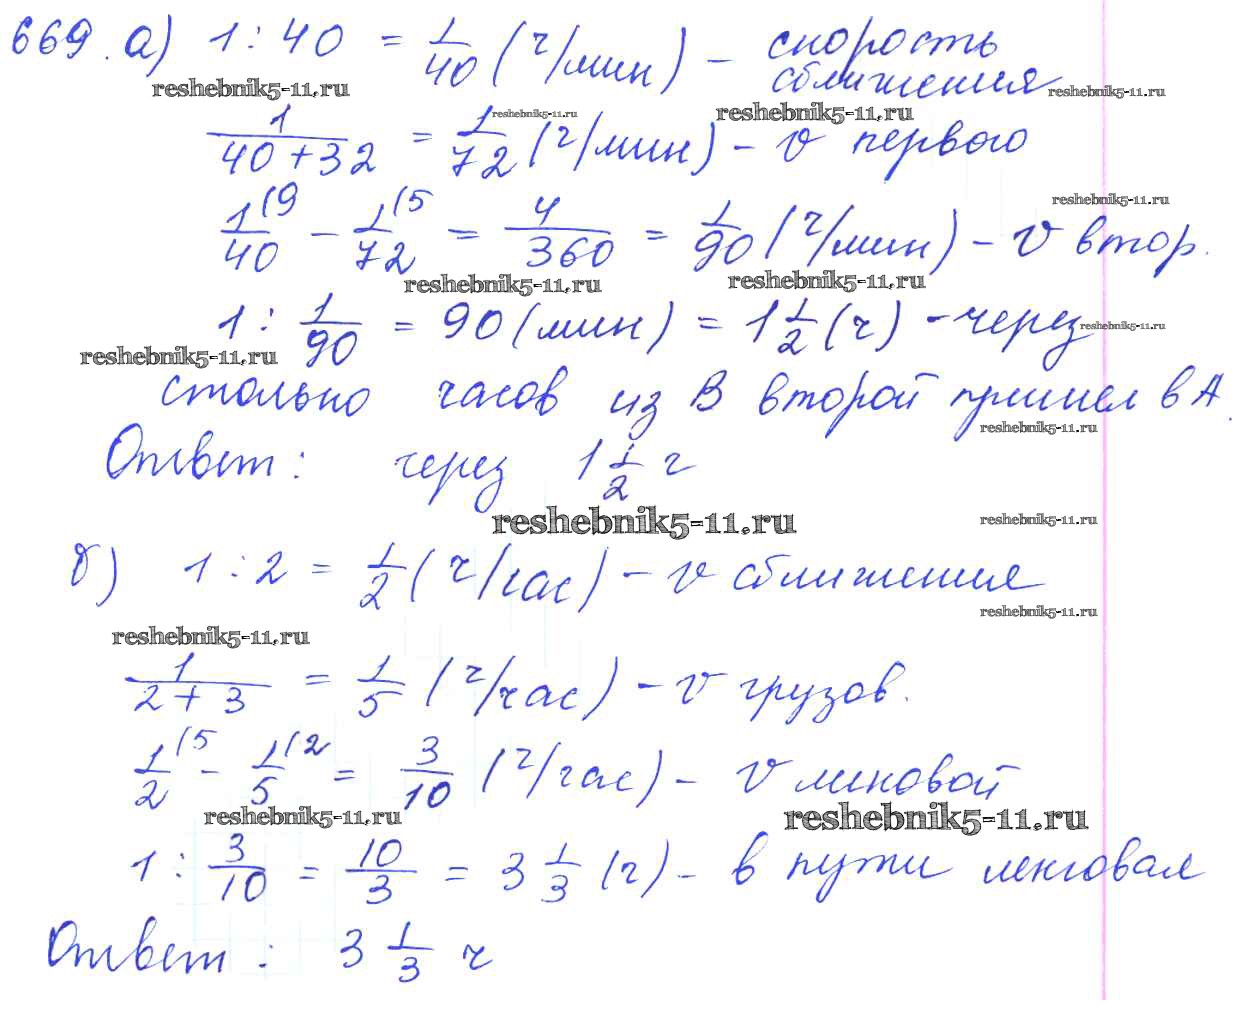 669. а) 1 : 40 = 1/40 (ч/мин) – скорость
сближения
reshebnik5-11.ru
reshebnik5-11.ru
reshebnik5-11.ru
reshebnik5-11.ru
1/(40 + 32) = 1/72 (ч/мин) – v первого
reshebnik5-11.ru
1/40 (9 – 1/72 (5 = 4/360 = 1/90 (ч/мин) – v втор.
reshebnik5-11.ru
reshebnik5-11.ru
1 : 1/90 = 90 (мин) = 1 1/2 (ч) – через
reshebnik5-11.ru
reshebnik5-11.ru
столько часов из В второй пришел в А.
reshebnik5-11.ru
Ответ: через 1 1/2 ч
reshebnik5-11.ru
reshebnik5-11.ru
б) 1 : 2 = 1/2 (ч/час) – v сближения
reshebnik5-11.ru
reshebnik5-11.ru
1/(2 + 3) = 1/5 (ч/час) – v грузов.
1/2 (5 – 1/5 (2 = 3/10 (ч/час) – v
reshebnik5-11.ru
reshebnik5-11.ru
1 : 3/10 = 10/3 = 3 1/3 (ч) – в пути
Ответ: 3 1/3 ч